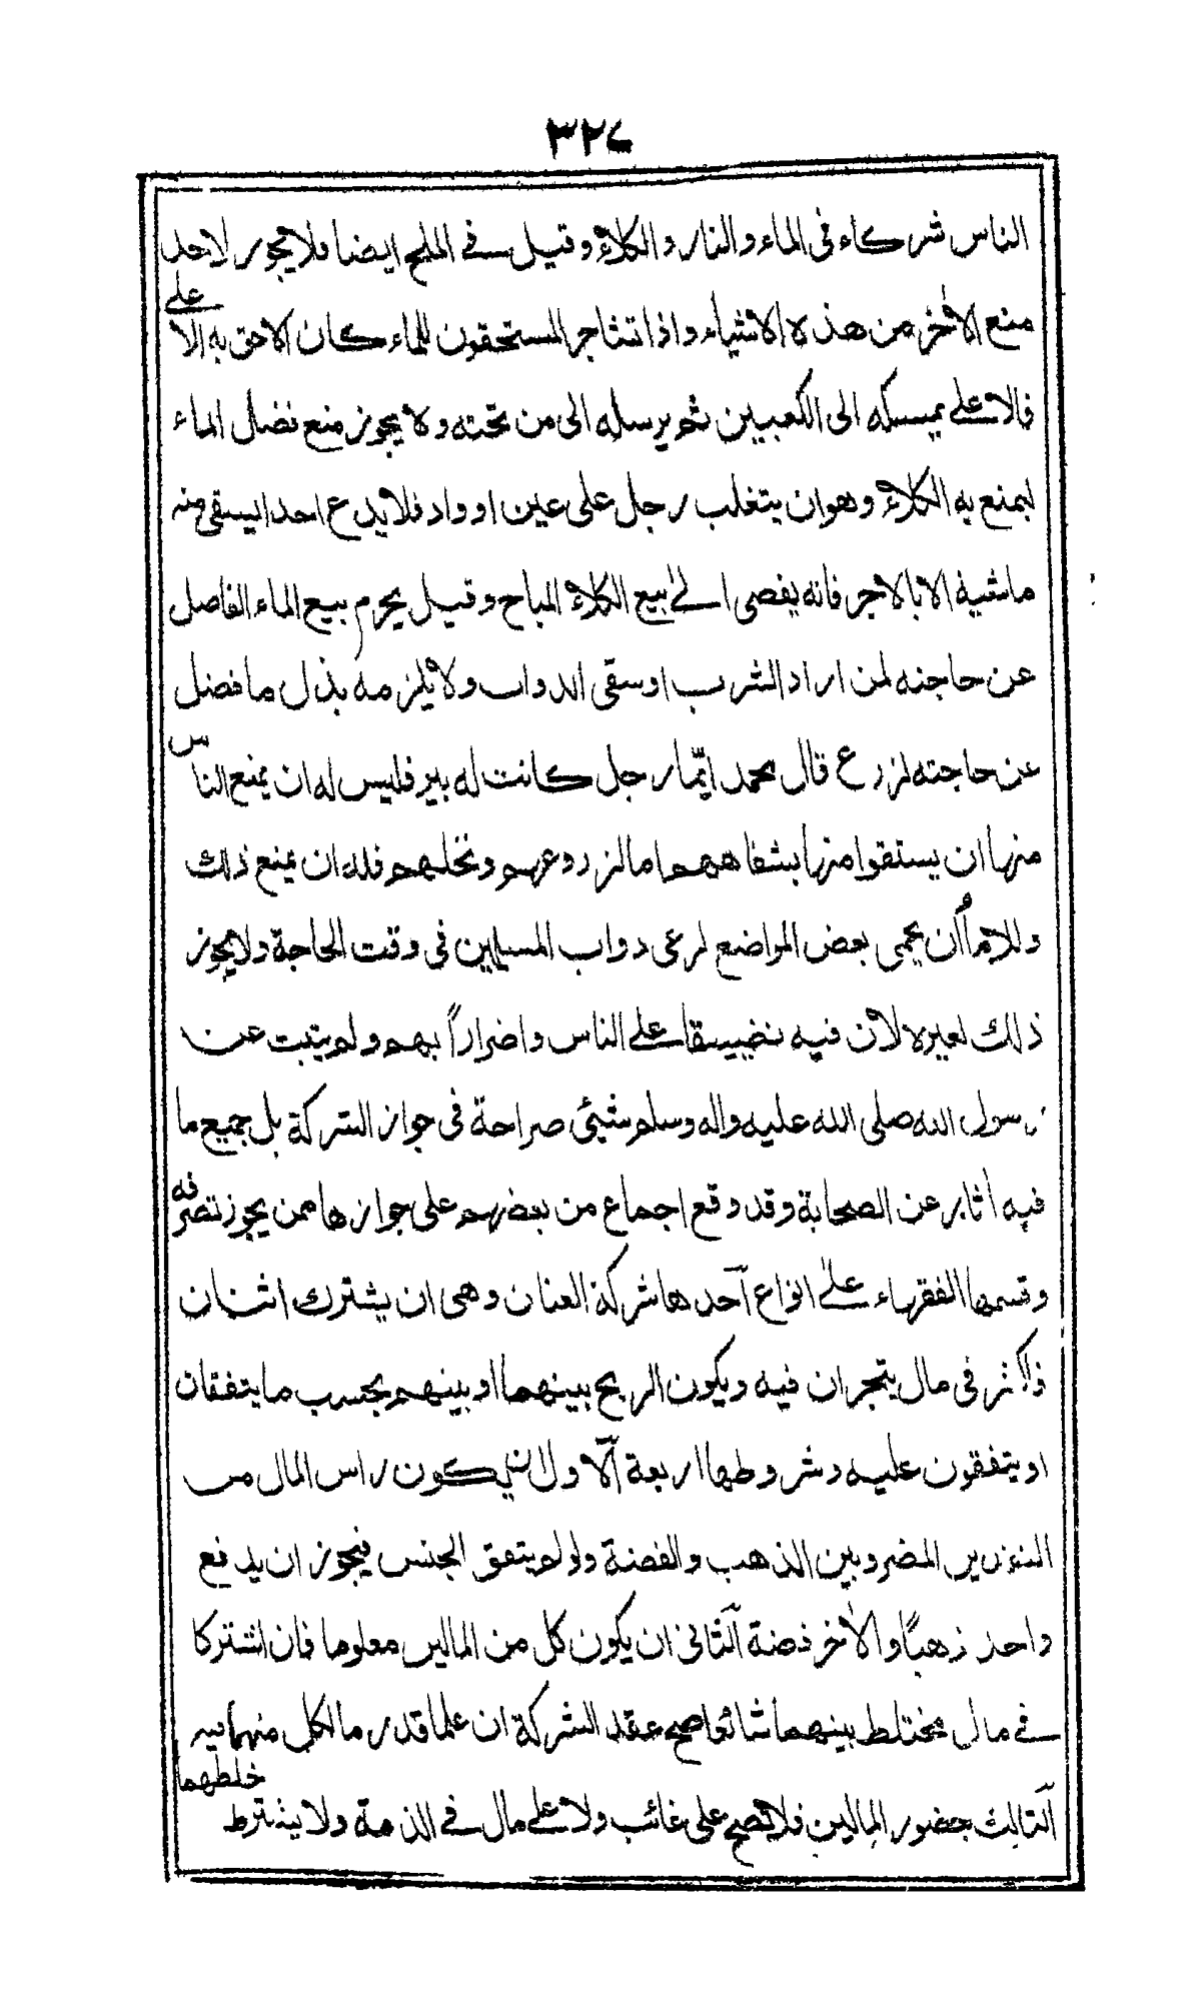 ٣٢٧
الناس شركاء فى الماء والنار والكلاء وقيل فے الملح ايضا فلا يجوز لاحد
منع الاٰخر من هذه الاشياء واذا تشاجر المستحقون للماء كان الاحق به الاعلے
فالاعلے يمسكه الى الكعبين ثم يرسله الى من تحته ولا يجوز منع فضل الماء
ليمنع به الكلاء وهو ان يتغلب رجل على عين او واد فلا يدع احدا يسقى منه
ماشية الا بالاجر فانه يفضى الےٰ بيع الكلاء المباح وقيل يحرم بيع الماء الفاضل
عن حاجته لمن اراد الشرب او سقى الدواب ولا يلزمه بذل ما فضل
عن حاجته لزرع قال محمد ايّما رجل كانت له بير فليس له ان يمنع الناس
منها ان يستقوا منها بشفاههم اما لزروعهم ونخلهم فله ان يمنع ذلك
وللامام ان يحمى بعض المواضع لرعى دواب المسلمين فى وقت الحاجة ولا يجوز
ذلك لغيره لان فيه تضييقا علے الناس واضراراً بهم ولم يثبت عن
رسول الله صلى الله عليه واله وسلم شيئ صراحة فى جواز الشركة بل جميع ما
فيه اٰثار عن الصحابة وقد وقع اجماع من بعضهم على جوازها ممن يجوز تصرفه
وقسمها الفقهاء علےٰ انواع آحدها شركة العنان وهى ان يشترك اثنان
فاكثر فى مال يتجران فيه ويكون الربح بينهما او بينهم بحسب ما يتفقان
او يتفقون عليه وشروطها اربعة آلاول ان يكون راس المال من
النقدين المضروبين الذهب والفضة ولو لم يتفق الجنس فيجوز ان يدفع
واحد ذهبًا والاٰخر فضة آلثانى ان يكون كل من المالين معلوما فان اشتركا
فے مال مختلط بينهما شائعا صح عقد الشركة ان علما قدر ما لكل منهما فيه
آلثالث حضور المالين فلا تصح على غائب ولا علے مال فے الذمة ولا يشترط خلطهما